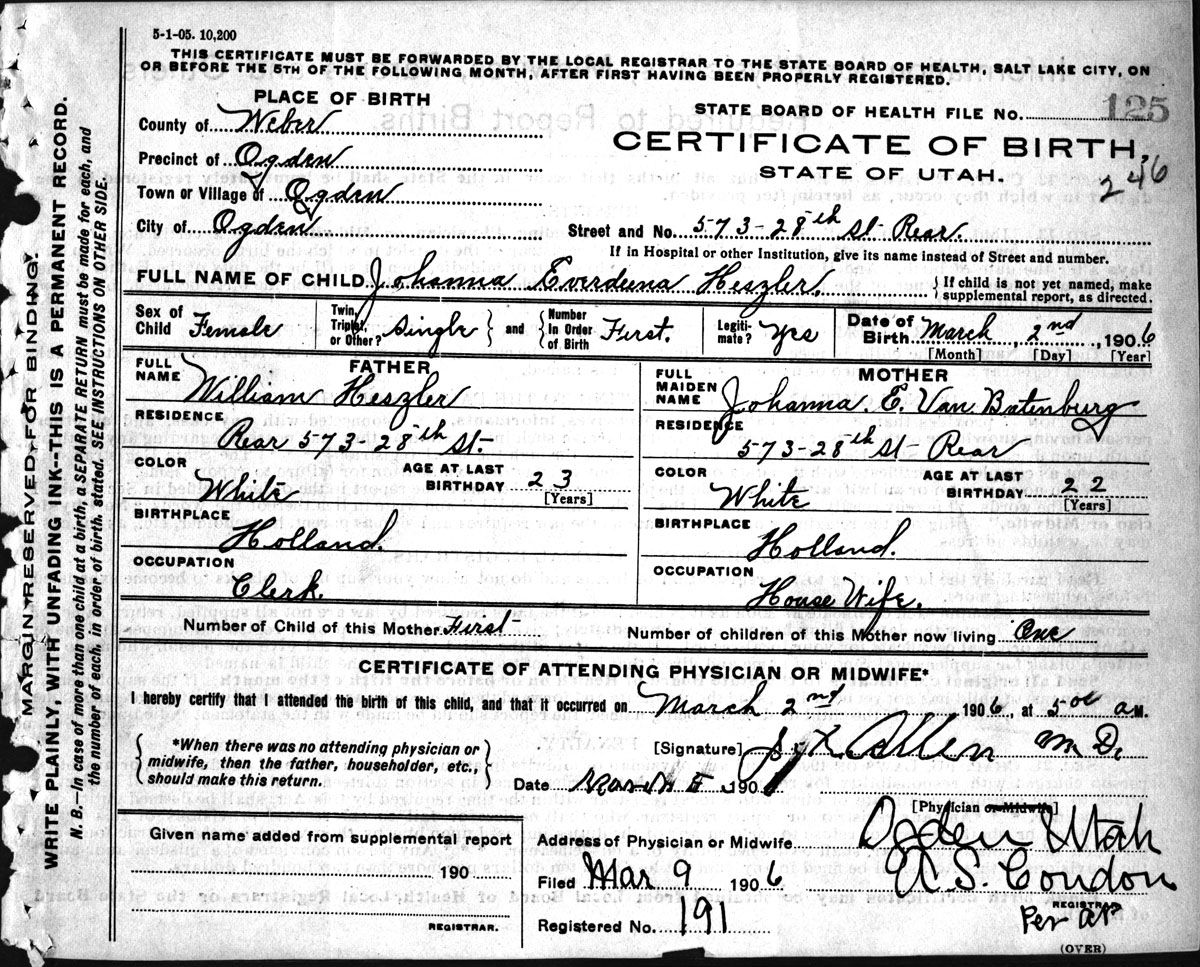 5-1-05. 10,200
THIS CERTIFICATE MUST BE FORWARDED BY THE LOCAL REGISTRAR TO THE STATE BOARD OF HEALTH, SALT LAKE CITY, ON
OR BEFORE THE 5TH OF THE FOLLOWING MONTH, AFTER FIRST HAVING BEEN PROPERLY REGISTERED.
PLACE OF BIRTH
County of Weber
Precinct of Ogden
Town or Village of Ogden
City of Ogden
STATE BOARD OF HEALTH FILE NO. 125
CERTIFICATE OF BIRTH,
STATE OF UTAH.
246
Street and No. 573-28th St. Rear.
If in Hospital or other Institution, give its name instead of Street and number.
FULL NAME OF CHILD Johanna Everdena Heszler. } If child is not yet named, make
supplemental report, as directed.
Sex of Child Female
Twin, Triplet, or Other? Single and Number In Order of Birth First.
Legiti- mate? Yes
Date of Birth March, 2nd, 1906
[Month] [Day] [Year]
FATHER
FULL NAME William Heszler
RESIDENCE
Rear 573-28th St.
COLOR White AGE AT LAST BIRTHDAY 23
[Years]
BIRTHPLACE
Holland.
OCCUPATION
Clerk.
MOTHER
FULL MAIDEN NAME Johanna. E. Van Batenburg
RESIDENCE
573-28th St Rear
COLOR White AGE AT LAST BIRTHDAY 22
[Years]
BIRTHPLACE
Holland.
OCCUPATION
House Wife.
Number of Child of this Mother First Number of children of this Mother now living One
CERTIFICATE OF ATTENDING PHYSICIAN OR MIDWIFE*
I hereby certify that I attended the birth of this child, and that it occurred on March 2nd 1906, at 5 oc AM.
*When there was no attending physician or
midwife, then the father, householder, etc.,
should make this return.
[Signature] Allen M D.
Date March 190
[Physician or Midwife]
Given name added from supplemental report
190
REGISTRAR.
Address of Physician or Midwife Ogden Utah
Filed Mar 9 1906 Condon
REGISTRAR
Registered No. 191
Per
(OVER)
MARGIN RESERVED FOR BINDING.
WRITE PLAINLY, WITH UNFADING INK--THIS IS A PERMANENT RECORD.
N. B.—In case of more than one child at a birth, a SEPARATE RETURN must be made for each, and
the number of each, in order of birth, stated. SEE INSTRUCTIONS ON OTHER SIDE.